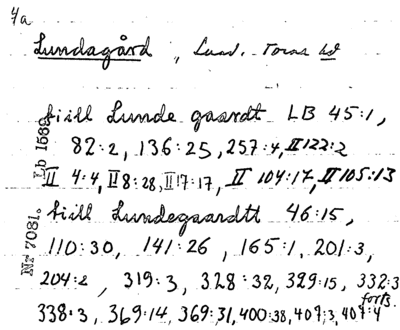 4a
Lundagård, Lund. Torna hd
tiill Lunde gaardt LB 45:1,
82:2, 136:25, 257:4, II 122:2
II 4:4, II 8:28, II 17:17, II 104:17, II 105:13
tiill Lundegaardtt 46:15,
110:30, 141:26, 165:1, 201:3,
204:2, 319:3, 328:32, 329:15, 332:3
forts.
338:3, 369:14, 369:31, 400:38, 407:3, 407:4
Lb 1589
Nr 7081.